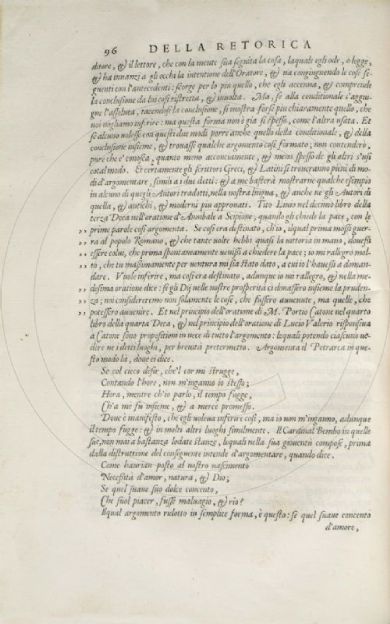 96 DELLA RETORICA
ditore, & il lettore, che con la mente sua seguita la cosa, laquale egli ode, o legge,
& ha innanzi a gli occhi la intentione dell'Oratore, & va congiungendo le cose se-
guenti con l'antecedenti: scorge per lo piu quello, che egli accenna, & comprende
la conclusione da lui cosi ristretta, & involta. Ma, se alla conditionale s'aggiu-
gne l'assoluta, tacendosi la conclusione, si mostra forse piu chiaramente quello, che
noi vogliamo inferire: ma questa forma non è già sì spessa, come l'altra usata. Et
se alcuno volesse con questi due modi porre anche quello della conditionale, & della
conclusione insieme, & trovasse qualche argomento cosi formato; non contenderò,
pure che e' conosca, quanto meno acconciamente, & meno spesso de gli altri s'usi
cotal modo. Et certamente gli scrittori Greci, & Latini si troveranno pieni di mo-
di d'argomentare, simili a i due detti: & a me basterà mostrarne qualche esempio
in alcuno di quegli Autori tradotti nella nostra lingua, & anche ne gli Autori di
quella, & antichi, & moderni piu approvati. Tito Livio nel decimo libro della
terza Deca nell'oratione d'Annibale a Scipione, quando gli chiede la pace, con le
prime parole cosi argomenta. Se cosi era destinato, ch'io, ilqual prima mossi guer-
ra al popolo Romano, & che tante volte hebbi quasi la vittoria in mano, dovessi
essere colui, che prima spontaneamente venissi a chiedere la pace; io mi rallegro mol-
to, che tu massimamente per ventura mi sia stato dato, a cui io l'havessi a doman-
dare. Vuole inferire, ma cosi era destinato, adunque io mi rallegro, & nella me-
desima oratione dice: se gli Dij nelle nostre prosperità ci donassero insieme la pruden-
za; noi consideraremo non solamente le cose, che fussero avvenute, ma quelle, che
potessero avvenire. Et nel principio dell'oratione di M. Portio Catone nel quarto
libro della quarta Deca, & nel principio dell'oratione di Lucio Valerio risponsiva
a Catone sono propositioni in vece di tutto l'argomento: lequali potendo ciascuno ve-
dere ne i detti luoghi, per brevità pretermetto. Argomenta il Petrarca in que-
sto modo là, dove ei dice.
Se col cieco desir, che'l cor mi strugge,
Contando l'hore, non m'inganno io stesso;
Hora, mentre ch'io parlo, il tempo fugge,
Ch'a me fu insieme, & a mercè promesso.
Dove è manifesto, che egli voleva inferire cosi, ma io non m'inganno, adunque
il tempo fugge: & in molti altri luoghi similmente. Il Cardinal Bembo in quelle
sue, non mai a bastanza lodate stanze, lequali nella sua gioventù compose, prima
dalla distruttion del conseguente intende d'argomentare, quando dice.
Come havrian posto al nostro nascimento
Necessità d'amor, natura, & Dio;
Se quel suave suo dolce concento,
Che suol piacer, fusse malvagio, & rio?
Ilqual argomento ridotto in semplice forma, è questo: se quel suave concento
d'amore,